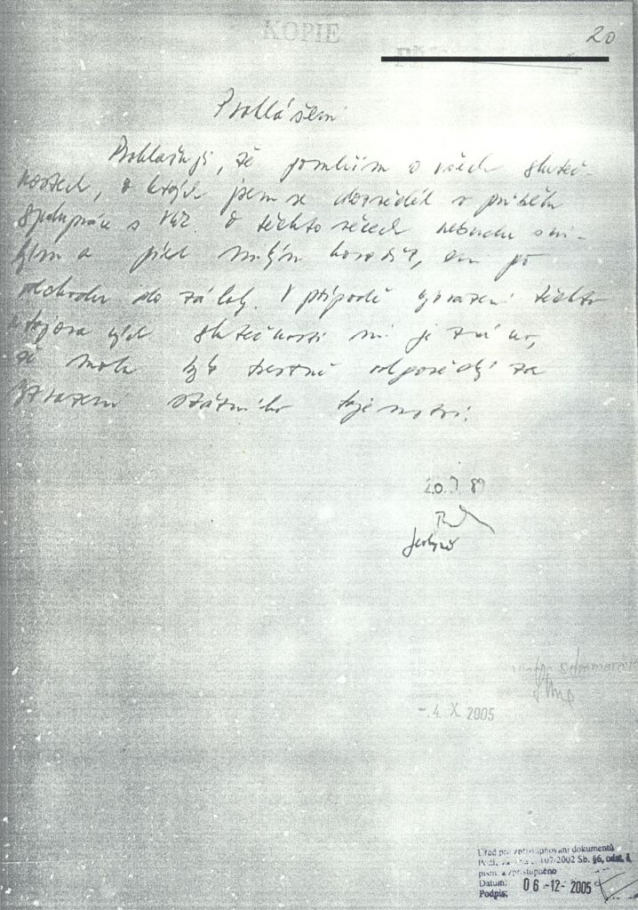 KOPIE
20
Prohlášení
Prohlašuji, že pomlčím o všech skuteč-
nostech, o kterých jsem se dozvěděl v průběhu
spolupráce s VKR. O těchto věcech nebudu s ni-
kým a před nikým hovořit, ani po
odchodu do zálohy. V případě vyzrazení těchto
utajovaných skutečností mi je známo,
že mohu být trestně odpovědný za
vyzrazení státního tajemství.
20. 89
-. 4. X. 2005
Úřad pro zpřístupňování dokumentů
107/2002 Sb. §6, odst.
písm. a zpřístupněno
Datum: 06-12-2005
Podpis: